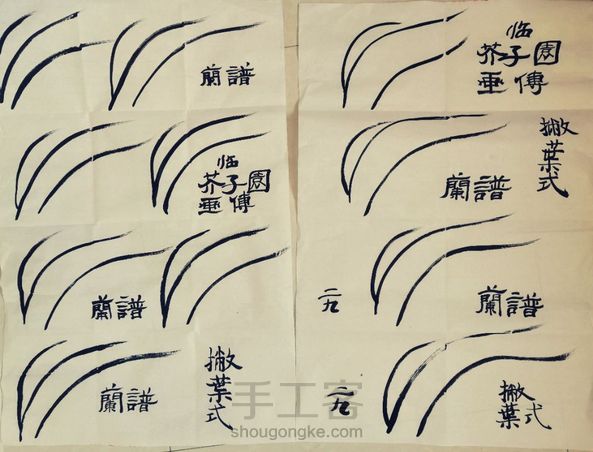 蘭譜
临
芥子園
畫傳
蘭譜
蘭譜
撇葉式
临
芥子園
畫傳
撇葉式
蘭譜
二九
蘭譜
二九
撇葉式
手工客
shougongke.com